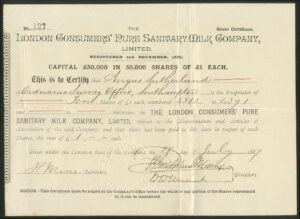 No. 127
Share Certificate.
THE
LONDON CONSUMERS' PURE SANITARY MILK COMPANY,
LIMITED.
REGISTERED 2ND DECEMBER, 1895.
CAPITAL £50,000 IN 50,000 SHARES OF £1 EACH.
This is to Certify that Angus Sutherland
Ordnance Survey Office, Southampton is the Proprietor of
Ten Shares of £1 each, numbered 4282 to 4291
inclusive, in THE LONDON CONSUMERS' PURE
SANITARY MILK COMPANY, LIMITED, subject to the Memorandum and Articles of
Association of the said Company, and that there has been paid to this date in respect of each
Share, the sum of £1
Given under the Common Seal of the Company, the day of July
Directors.
Secretary.
NOTICE.—This Certificate must be lodged at the Company's Office before the whole or any portion of the Shares represented
by it can be transferred.